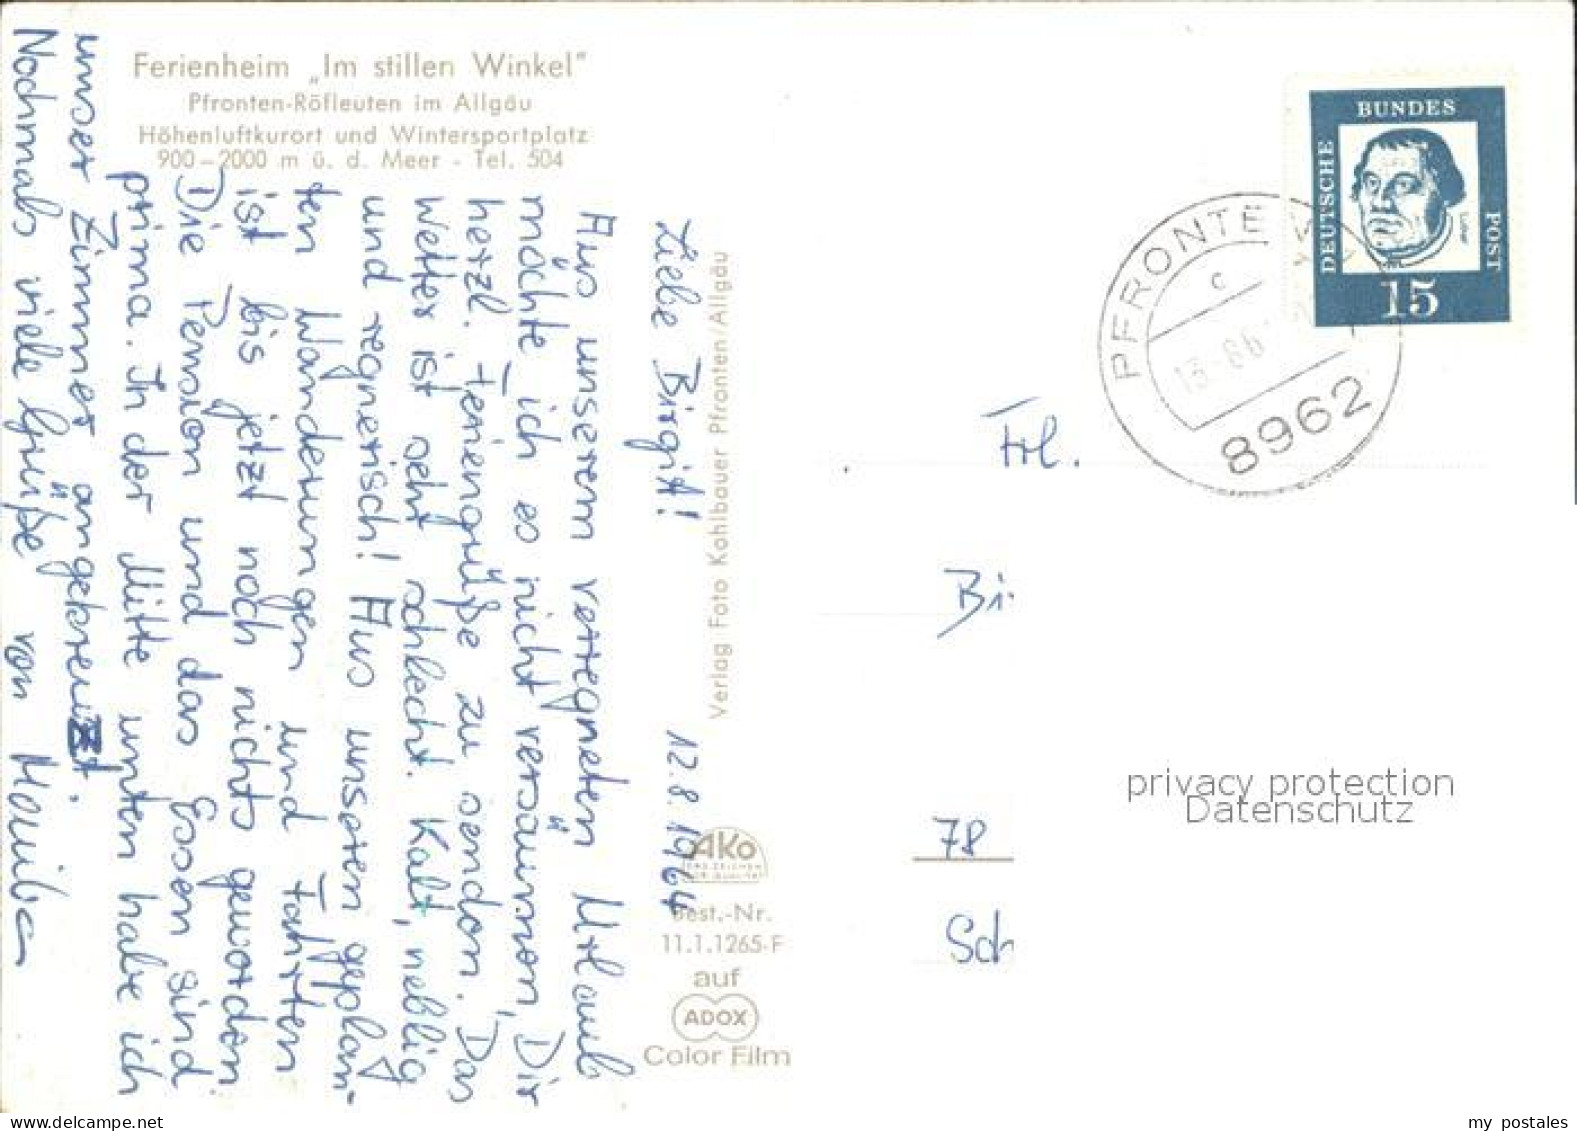 Ferienheim „Im stillen Winkel"
Pfronten-Röfleuten im Allgäu
Höhenluftkurort und Wintersportplatz
900–2000 m ü. d. Meer - Tel. 504
12.8.1964
Liebe Birgit!
Aus unserem verregneten Urlaub
möchte ich es nicht versäumen, Dir
herzl. Feriengrüße zu senden. Das
Wetter ist sehr schlecht. Kalt, neblig
und regnerisch! Aus unseren geplan-
ten Wanderungen und Fahrten
ist bis jetzt noch nichts geworden.
Die Pension und das Essen sind
prima. In der Mitte unten habe ich
unser Zimmer angekreuzt.
Nochmals viele Grüße von Monika
Verlag Foto Kohlbauer Pfronten/Allgäu
AKo
DAS ZEICHEN
DER QUALITÄT
Best.-Nr.
11.1.1265-F
auf
ADOX
Color Film
DEUTSCHE
BUNDES
POST
Luther
15
PFRONTE
c
8962
Frl.
Bi
78
Sch
privacy protection
Datenschutz
my postales